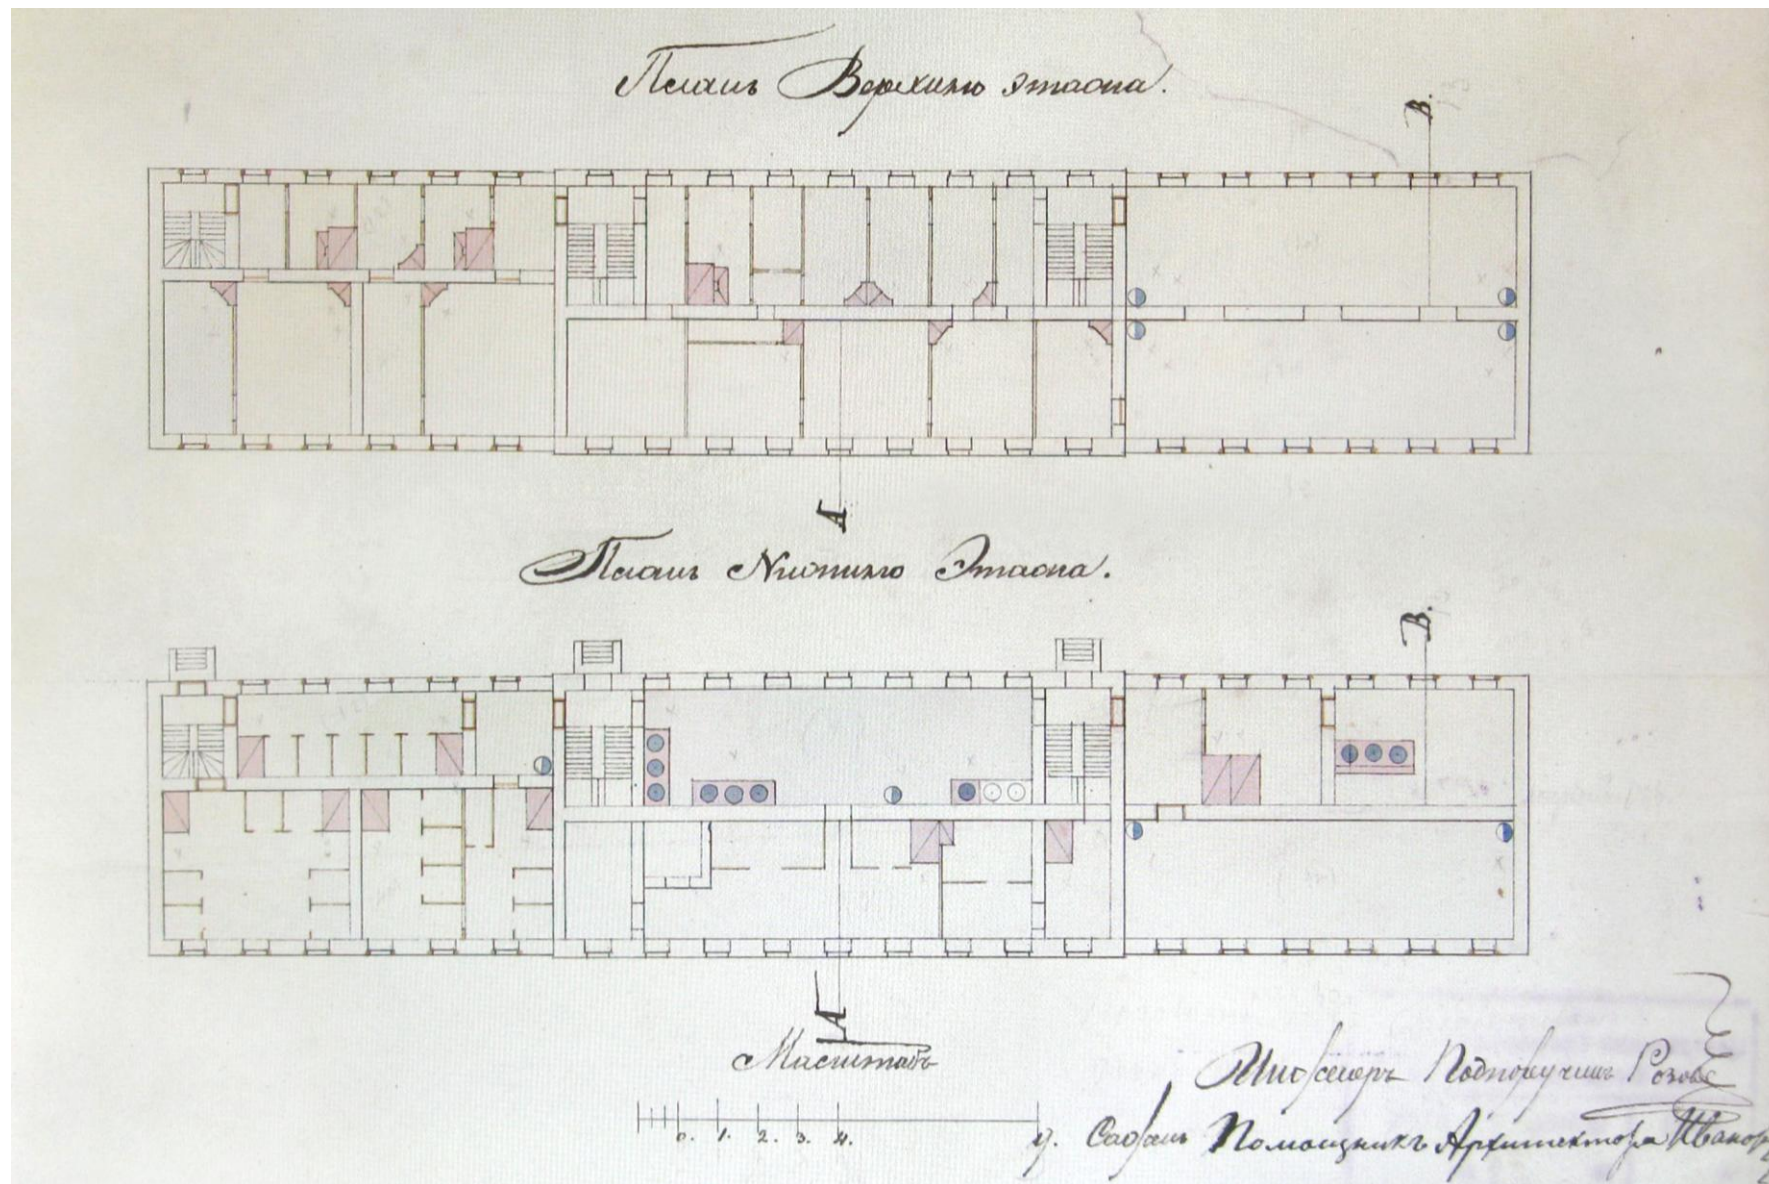 Планъ Верхняго этажа.
В.
А
Планъ Нижняго Этажа.
В.
А
Масштабъ
0. 1. 2. 3. 4. 9.
Инженеръ Подпоручикъ Розовъ
Помощникъ Архитектора Иванов